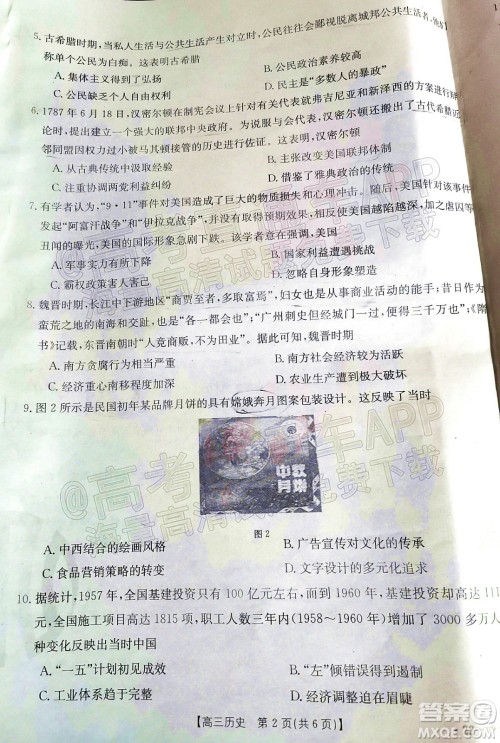 5. 古希腊时期，当私人生活与公共生活产生对立时，公民往往会鄙视脱离城邦公共生活者，
称单个公民为白痴。这反映出古代希腊
A. 集体主义得到了弘扬
B. 公民政治素养较高
C. 公民缺乏个人自由权利
D. 民主是“多数人的暴政”
6. 1787 年 6 月 18 日，汉密尔顿在制宪会议上针对有关代表就弗吉尼亚和新泽西的方案进行
论后，提出建立一个强大的联邦中央政府。为说服与会者，汉密尔顿还搬出了古代希腊近
邻同盟因权力过小被马其顿接管的历史进行佐证。
A. 从古典传统中汲取经验
B. 主张实现美国联邦体制
C. 致力于协调两党利益纠纷
D. 借鉴了雅典政治模式
7. 有学者认为，“9·11”事件对美国造成了巨大的物质损失和心理影响，而美国针对该事件
发起“阿富汗战争”和“伊拉克战争”，使原有问题没有解决，美国却越陷越深，加之虐囚等
丑闻的曝光，美国的国际形象急剧下跌。该学者意在强调，美国
A. 反恐为世界带来不安
B. 国家利益遭遇挑战
C. 霸权政策损害自身
D. 忽略自身形象塑造
8. 魏晋时期，长江中下游地区“商贾至者，多取富焉”，妇女也是从事商业活动的能手；昔日作为
蛮荒之地的南海和交趾，成为一大都会；“广州刺史但经城门一过，便得三千万”；《隋
书》记载，东晋南朝时“人竞商贩，不为田业”。据此可知，魏晋时期
A. 南方贪腐行为相当严重
B. 南方社会经济较为活跃
C. 江南经济水平超越北方
D. 农业生产遭到极大破坏
9. 图 2 所示是民国初年某品牌月饼的具有嫦娥奔月图案包装设计。这反映了当时
中秋
月饼
图 2
A. 中西结合的绘画风格
B. 广告设计对文化的传承
C. 食品营销策略的转变
D. 设计理念的多元化追求
10. 据统计，1957 年，全国基建投资只有 100 亿元左右，而到 1960 年，基建投资增长到
元，全国施工项目高达 1815 项，职工人数三年内（1958～1960 年）增加了 3000 多万人
种变化反映出当时中国
A. “一五”计划初见成效
B. “左”倾错误影响国民经济
C. 工业体系趋于完整
D. 经济建设出现重大失误
【高三历史 第 2 页（共 6 页）】
@高考直通车APP
海量高清试题免费下载